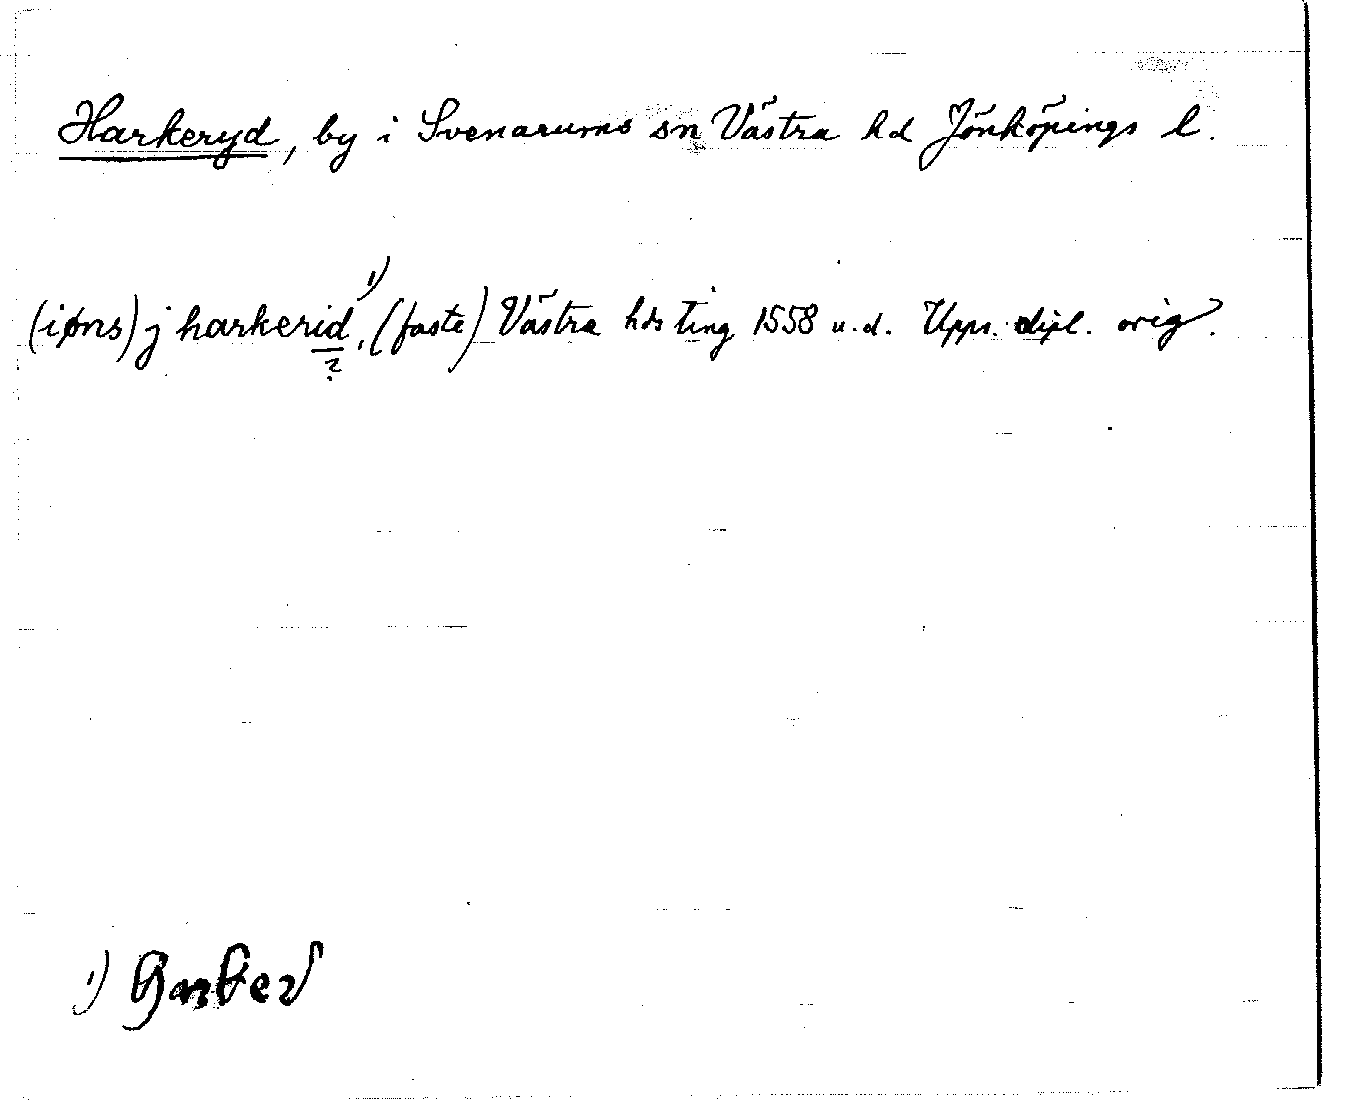 Harkeryd, by i Svenarums sn Västra hd Jönköpings l.
(iøns) j harkerid 1), (faste) Västra hds ting 1558 u.d. Upps. dipl. orig.
?
1)